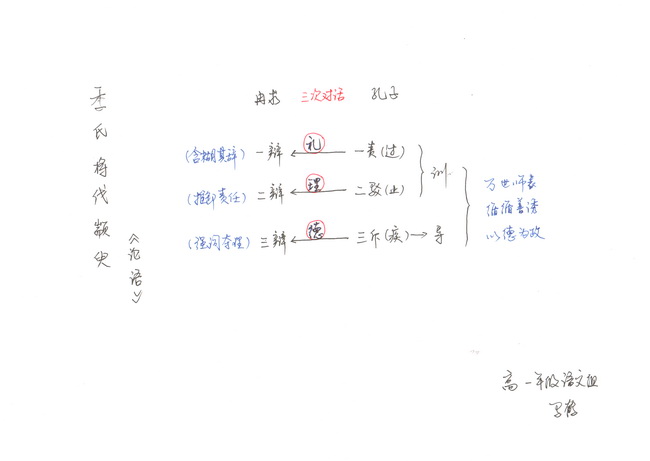 季氏将伐颛臾
《论语》
冉求 三次对话 孔子
(含糊其辞) 一辩 礼 一责(过)
(推卸责任) 二辩 理 二驳(止)
训
(强词夺理) 三辩 德 三斥(疾) 导
万世师表
循循善诱
以德为政
高一年级语文组